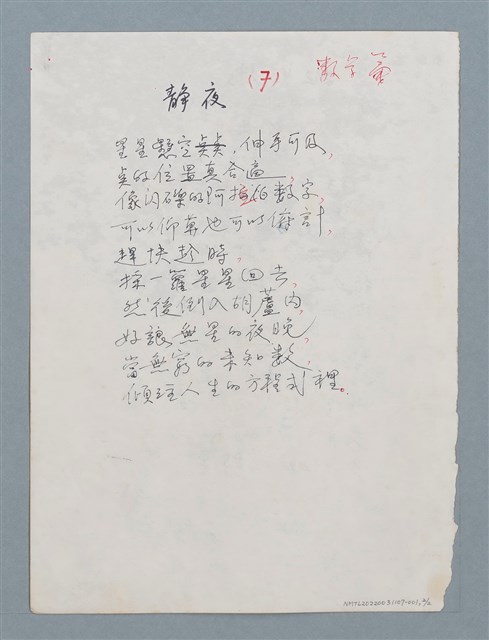 (7) 数字篇
靜夜
星星懸空點點，伸手可及，
點的位置真合適，
像闪礫的阿拉伯数字，
可以仰慕也可以俯計，
趕快趁時，
採一籮星星回去，
然後倒入葫蘆内，
好讓無星的夜晚，
當無窮的未知数，
傾注人生的方程式裡。
NMTL20220031107-001, 2/2